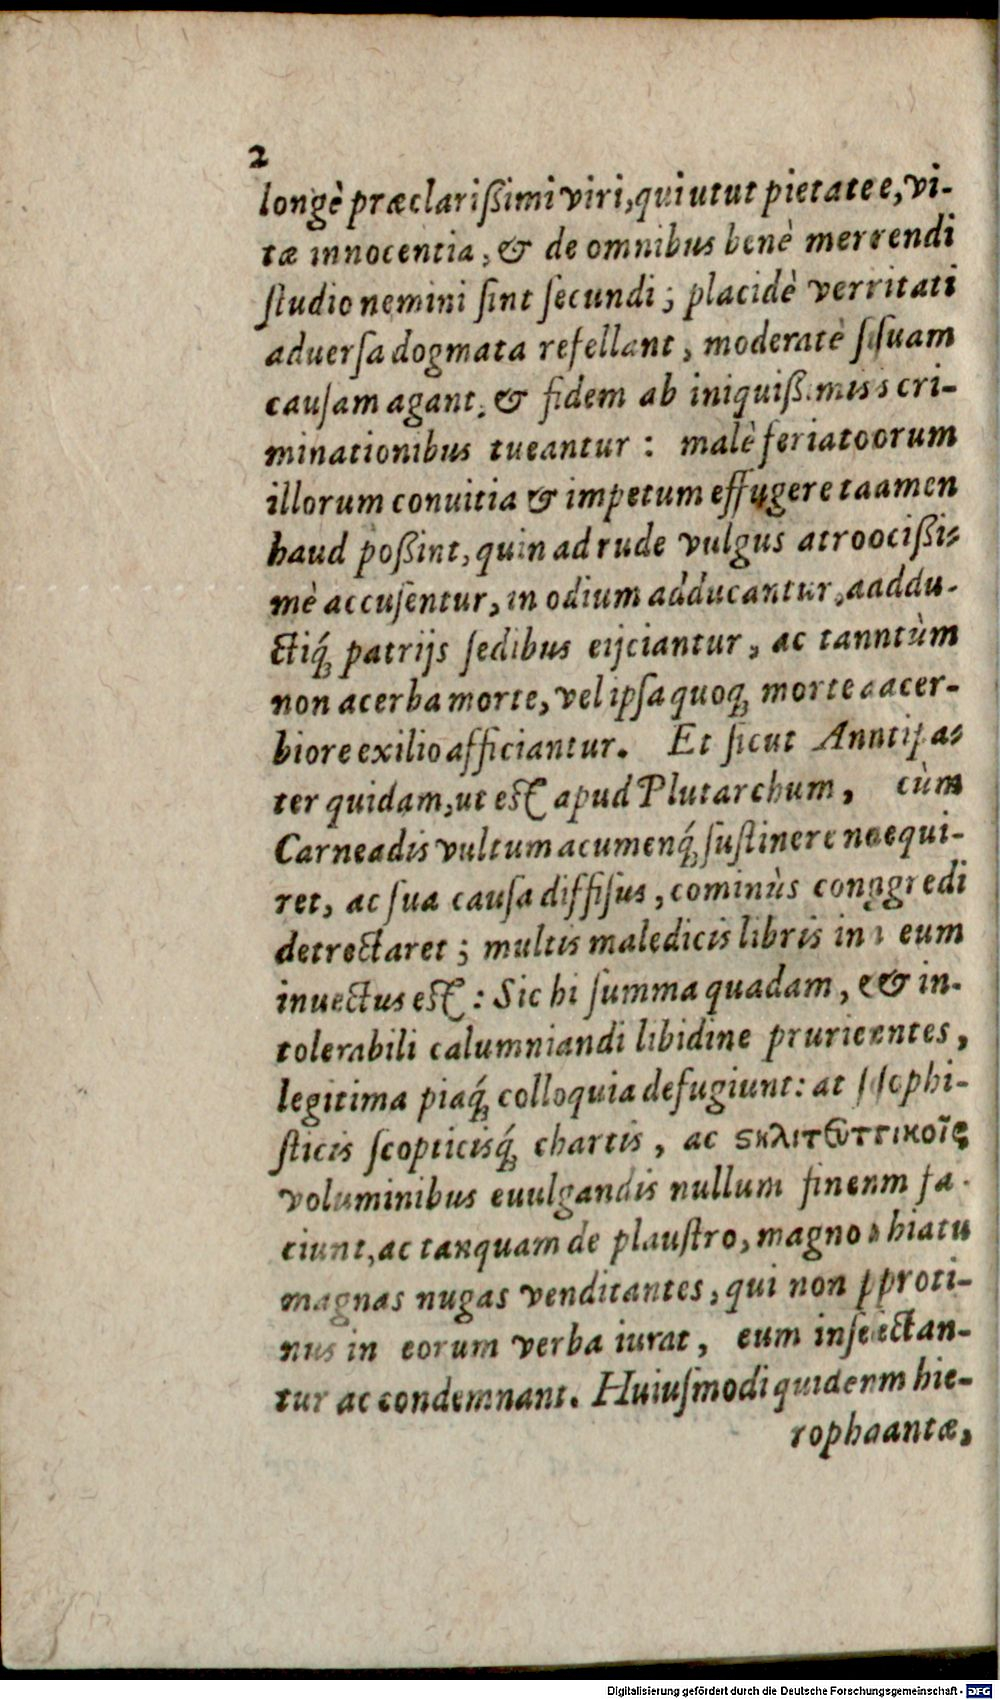 2
longè præclarißimi viri, qui utut pietate e, vi-
tæ innocentia, & de omnibus benè merrendi
ſtudio nemini ſint ſecundi; placidè verritati
aduerſa dogmata refellant, moderatè ſſuam
cauſam agant, & fidem ab iniquißimiss cri-
minationibus tueantur: malè feriatoorum
illorum conuitia & impetum effugere taamen
haud poßint, quin ad rude vulgus atroocißi-
mè accuſentur, in odium adducantur, aaddu-
ctiq́; patrijs ſedibus eijciantur, ac tanntùm
non acerba morte, vel ipſa quoq; morte aacer-
biore exilio afficiantur. Et ſicut Anntipa-
ter quidam, ut eſt apud Plutarchum, cùm
Carneadis vultum acumenq́; ſuſtinere neequi-
ret, ac ſua cauſa diffiſus, cominùs conggredi
detrectaret; multis maledicis libris in eum
inuectus eſt: Sic hi ſumma quadam, e& in-
tolerabili calumniandi libidine prurieentes,
legitima piaq́; colloquia defugiunt: at ſſophi-
ſticis ſcopticisq́; chartis, ac
voluminibus euulgandis nullum finenm fa-
ciunt, ac tanquam de plauſtro, magno hiatu
magnas nugas venditantes, qui non pproti-
nus in eorum verba iurat, eum inſeectan-
tur ac condemnant. Huiuſmodi quidenm hie-
rophaantæ,
Digitalisierung gefördert durch die Deutsche Forschungsgemeinschaft - DFG